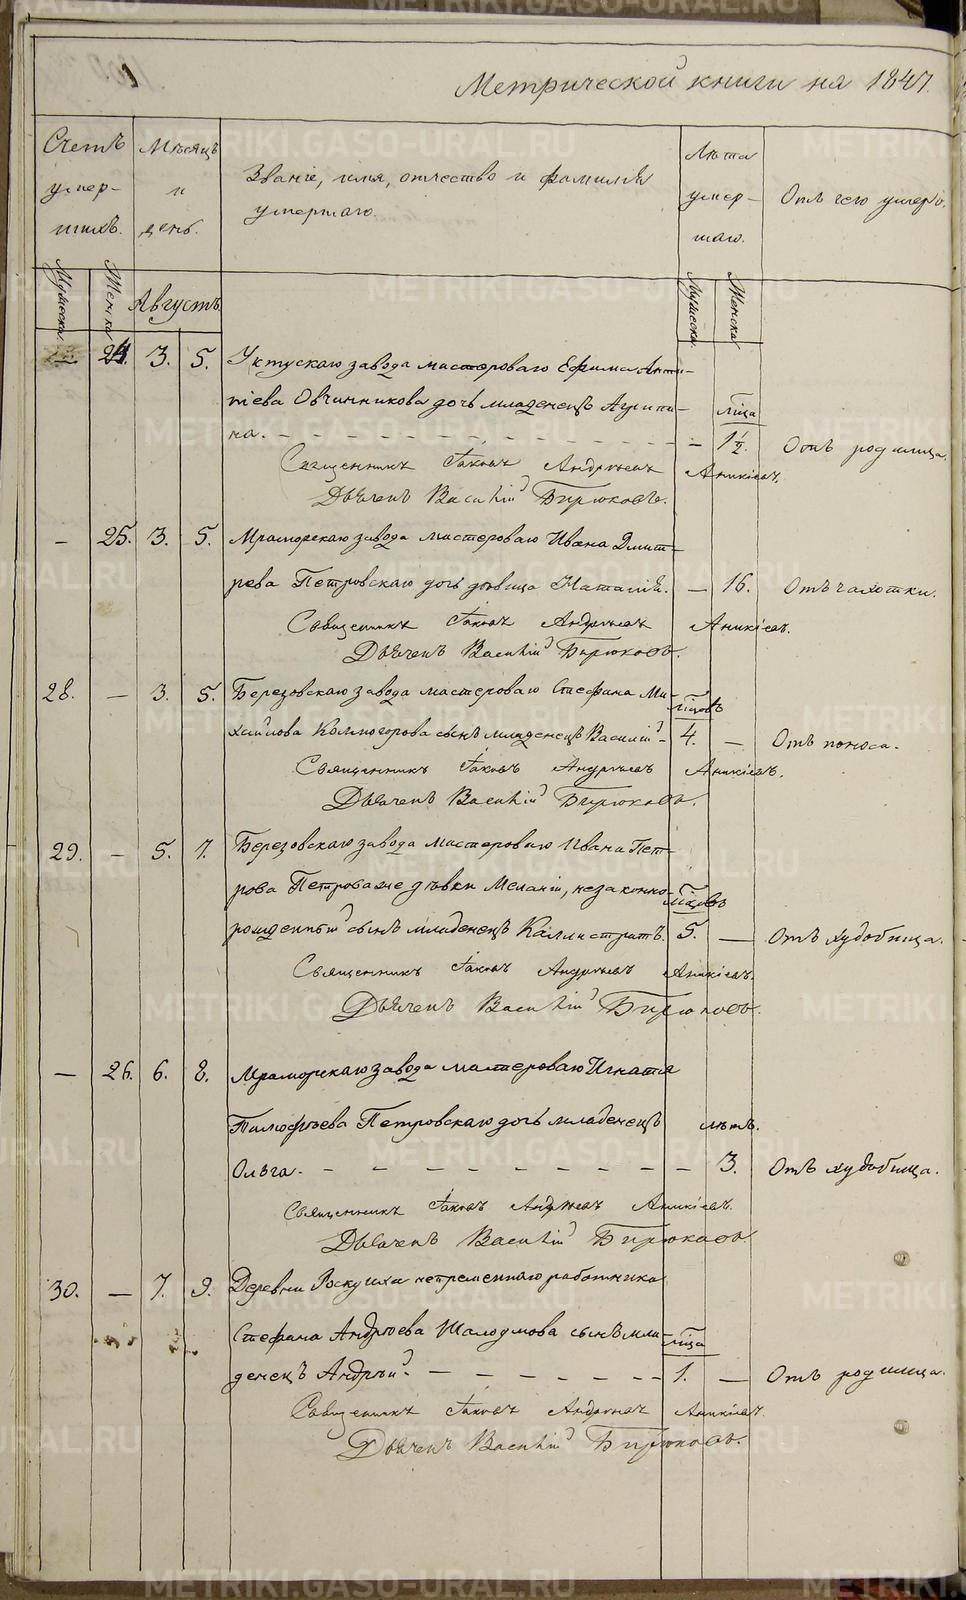 Метрической книги на 1847.
Счетъ умер- шихъ.
Мѣсяцъ и день.
Званіе, имя, отчество и фамилія умершаго.
Лѣта умер- шаго.
Отъ чего умеръ.
Мужеска. Женска Августъ Мужеска. Женска
24. 3. 5. Уктускаго завода мастероваго Ефима Анти-
піева Овчинникова дочь младенецъ Агрипи- м҃ца
на. - - - 1½. Отъ родимца.
Священникъ Іаковъ Андреевъ Аникіевъ.
Дьяченъ Василій Бирюковъ.
— 25. 3. 5. Мраморскаго завода мастероваго Ивана Дмит-
рева Петровскаго дочь дѣвица Наталія. — 16. Отъ чахотки.
Священникъ Іаковъ Андреевъ Аникіевъ.
Дьяченъ Василій Бирюковъ.
28. — 3. 5. Березовскаго завода мастероваго Стефана Ми-
хайлова Колмогорова сынъ младенецъ Василій - 4. — Отъ поноса.
Священникъ Іаковъ Андреевъ Аникіевъ.
Дьяченъ Василій Бирюковъ.
29. — 5. 7. Березовскаго завода мастероваго Ивана Пет-
рова Петрова же дѣвки Меланіи, незаконно-
рожденный сынъ младенецъ Каллистратъ. 5. — Отъ худобища.
Священникъ Іаковъ Андреевъ Аникіевъ.
Дьяченъ Василій Бирюковъ.
— 26. 6. 8. Мраморскаго завода мастероваго Игнатія
Тимофѣева Петровскаго дочь младенецъ лѣтъ.
Ольга. - - - 3. Отъ худобища.
Священникъ Іаковъ Андреевъ Аникіевъ.
Дьяченъ Василій Бирюковъ.
30. — 7. 9. Деревни непременнаго работника
Стефана Андреева сынъ мла- м҃ца
денецъ Андрей. - - - 1. — Отъ родимца.
Священникъ Іаковъ Андреевъ Аникіевъ.
Дьяченъ Василій Бирюковъ.
METRIKI.GASO-URAL.RU